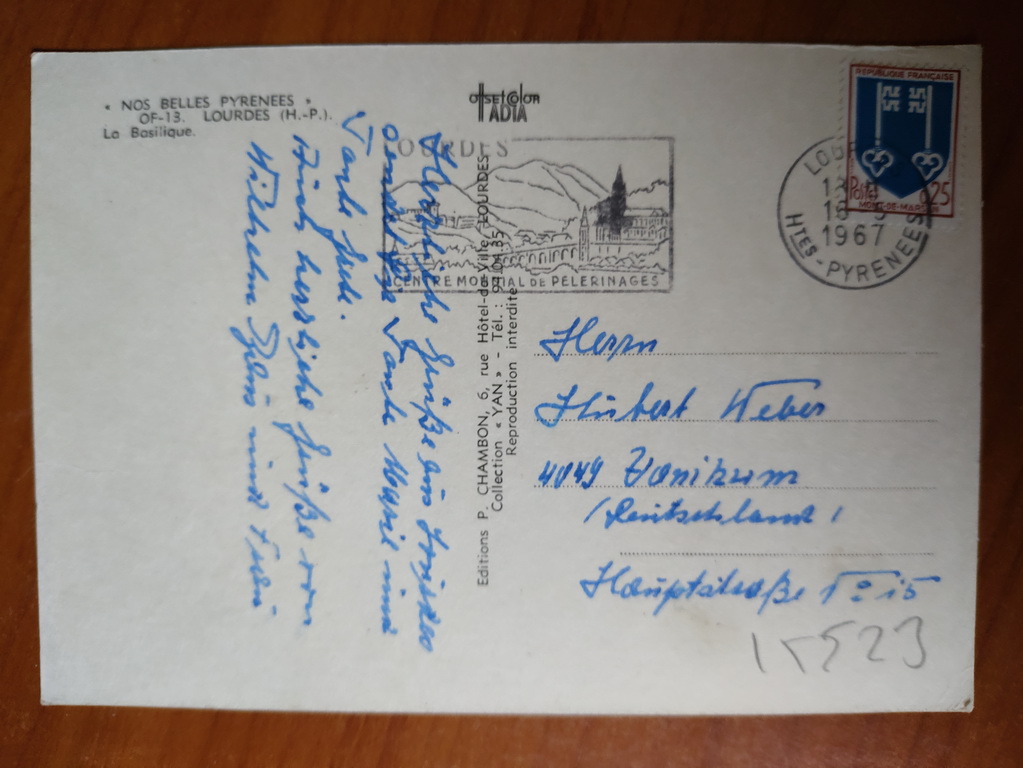 « NOS BELLES PYRENEES »
OF-13. LOURDES (H.-P.).
La Basilique.
OFFSET COLOR
IADIA
LOURDES
CENTRE MONDIAL DE PELERINAGES
REPUBLIQUE FRANÇAISE
Postes 0,25
MONT-DE-MARSAN
LOURDES
18
1967
HTES-PYRENEES
Editions P. CHAMBON, 6, rue Hôtel-de-Ville, LOURDES
Collection « YAN » - Tél. : 94.01.35
Reproduction interdite
Herzliche Grüße aus
sendet Tante Maria und
Tante
Auch herzliche Grüße von
Wilhelm und
Herrn
Hubert Weber
4049 Vanikum
(Deutschland)
Hauptstraße 15
15523